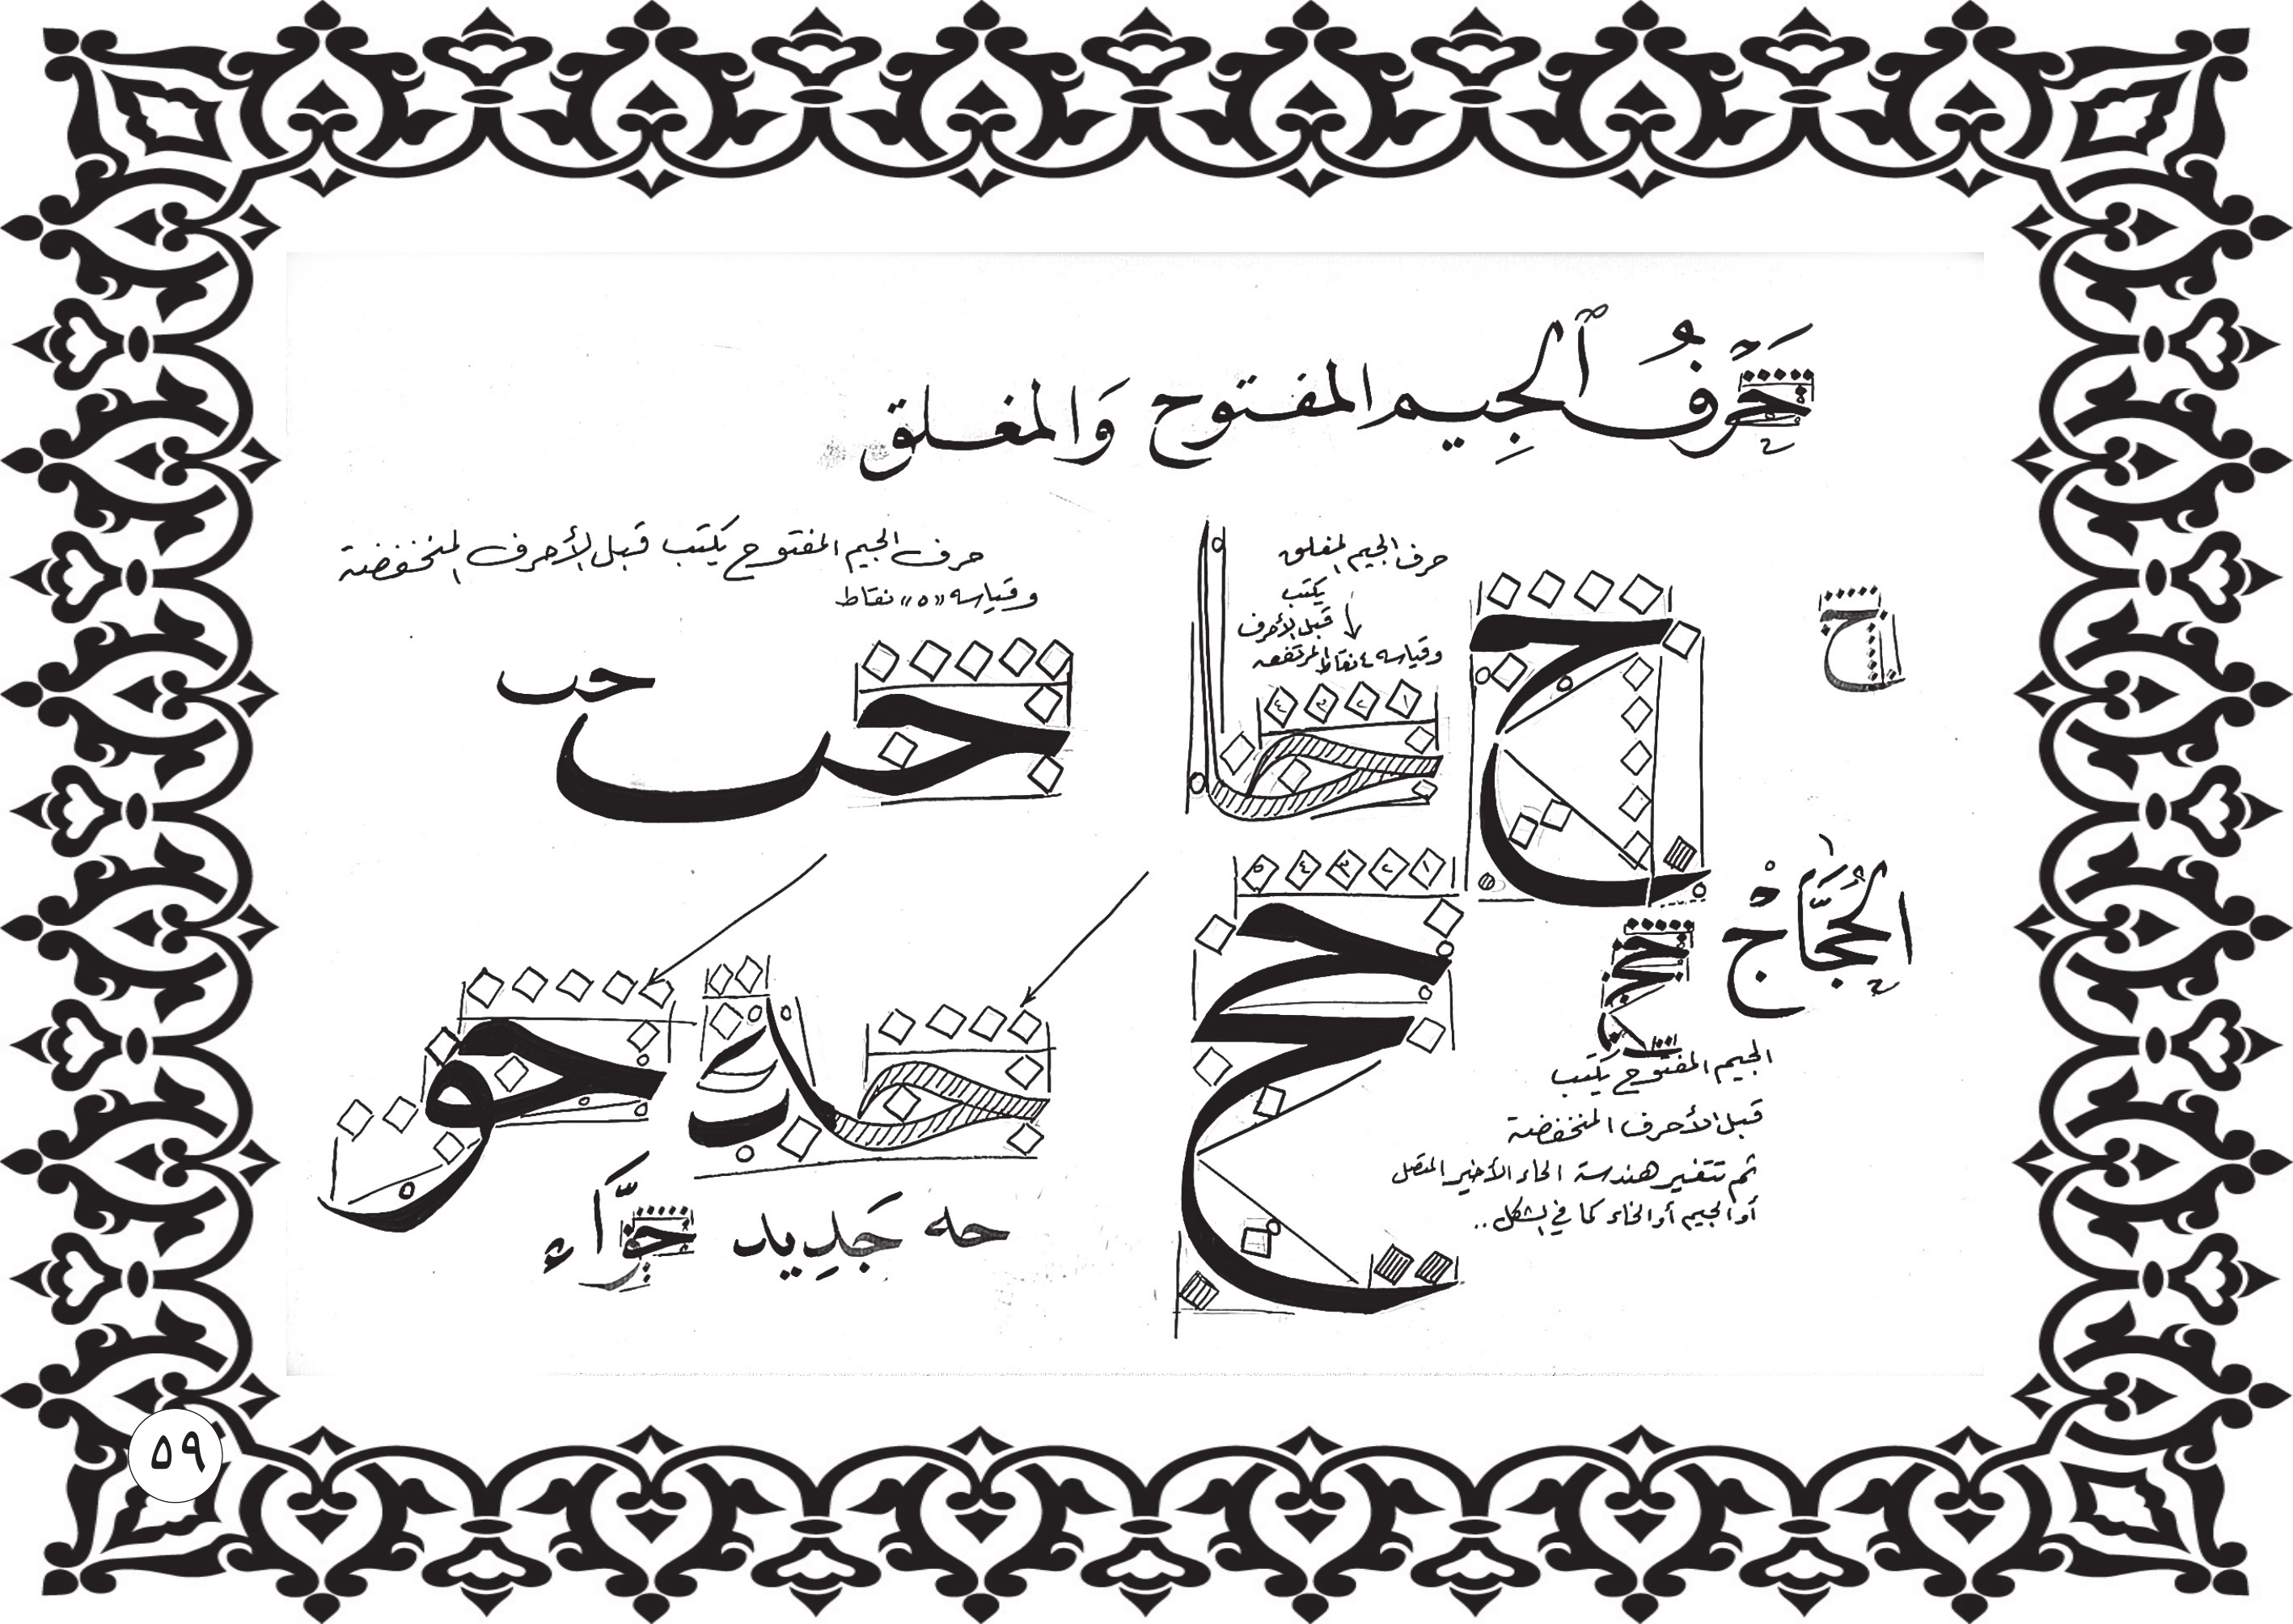 حَرْفُ ٱلجِيم المفتوح وَالمغلق
حرف الجيم المفتوح يكتب قبل الأحرف المنخفضة
وقياسه «٥» نقاط
حرف الجيم المغلق
يكتب
قبل الأحرف
المرتفعه
وقياسه ٤ نقاط
ح
حا
١ ٢ ٣ ٤
حب
حب
ح
الحُجَّاجْ
١ ٢ ٣ ٤ ٥
حج
الجيم المفتوح يكتب
قبل الأحرف المنخفضة
ثم تتغير هندسة الحاء الأخير المتصل
أو الجيم أو الخاء كما في الشكل ..
حد
حو
حه جَدِيد حَوَّاء
٥٩